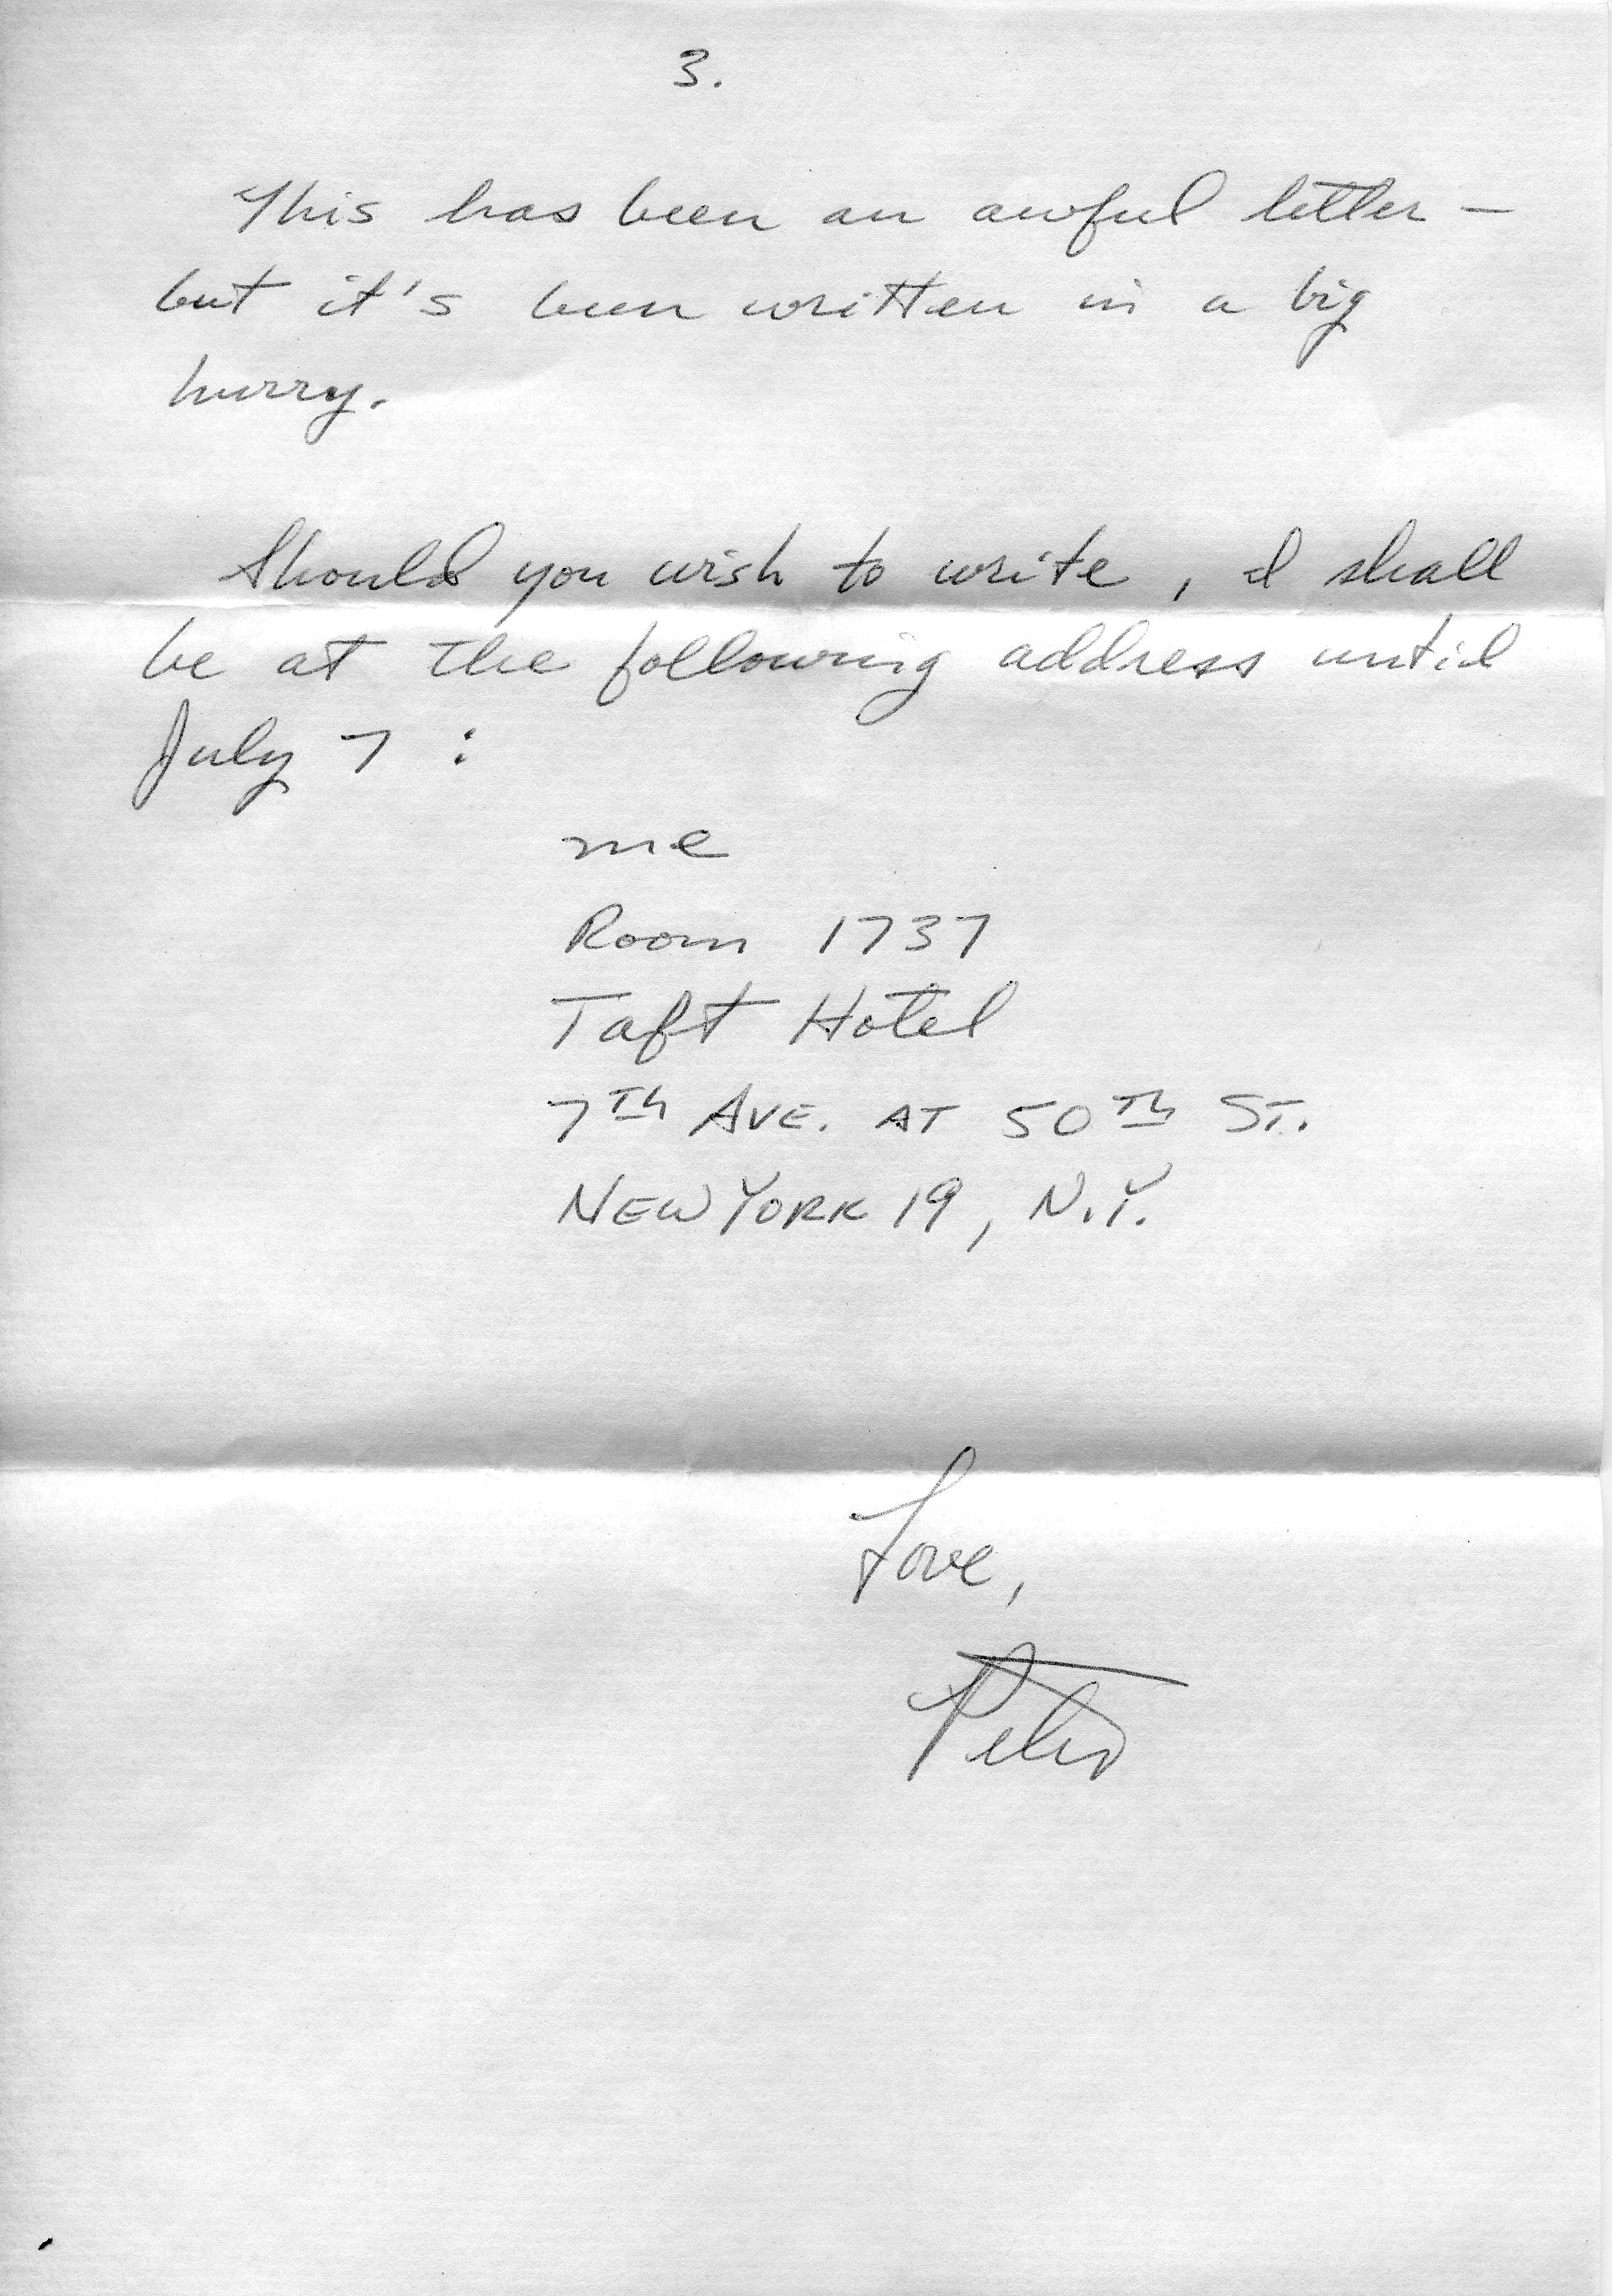 3.
This has been an awful letter –
but it's been written in a big
hurry.
Should you wish to write, I shall
be at the following address until
July 7 :
me
Room 1737
Taft Hotel
7TH AVE. AT 50TH ST.
NEW YORK 19, N.Y.
Love,
Peter